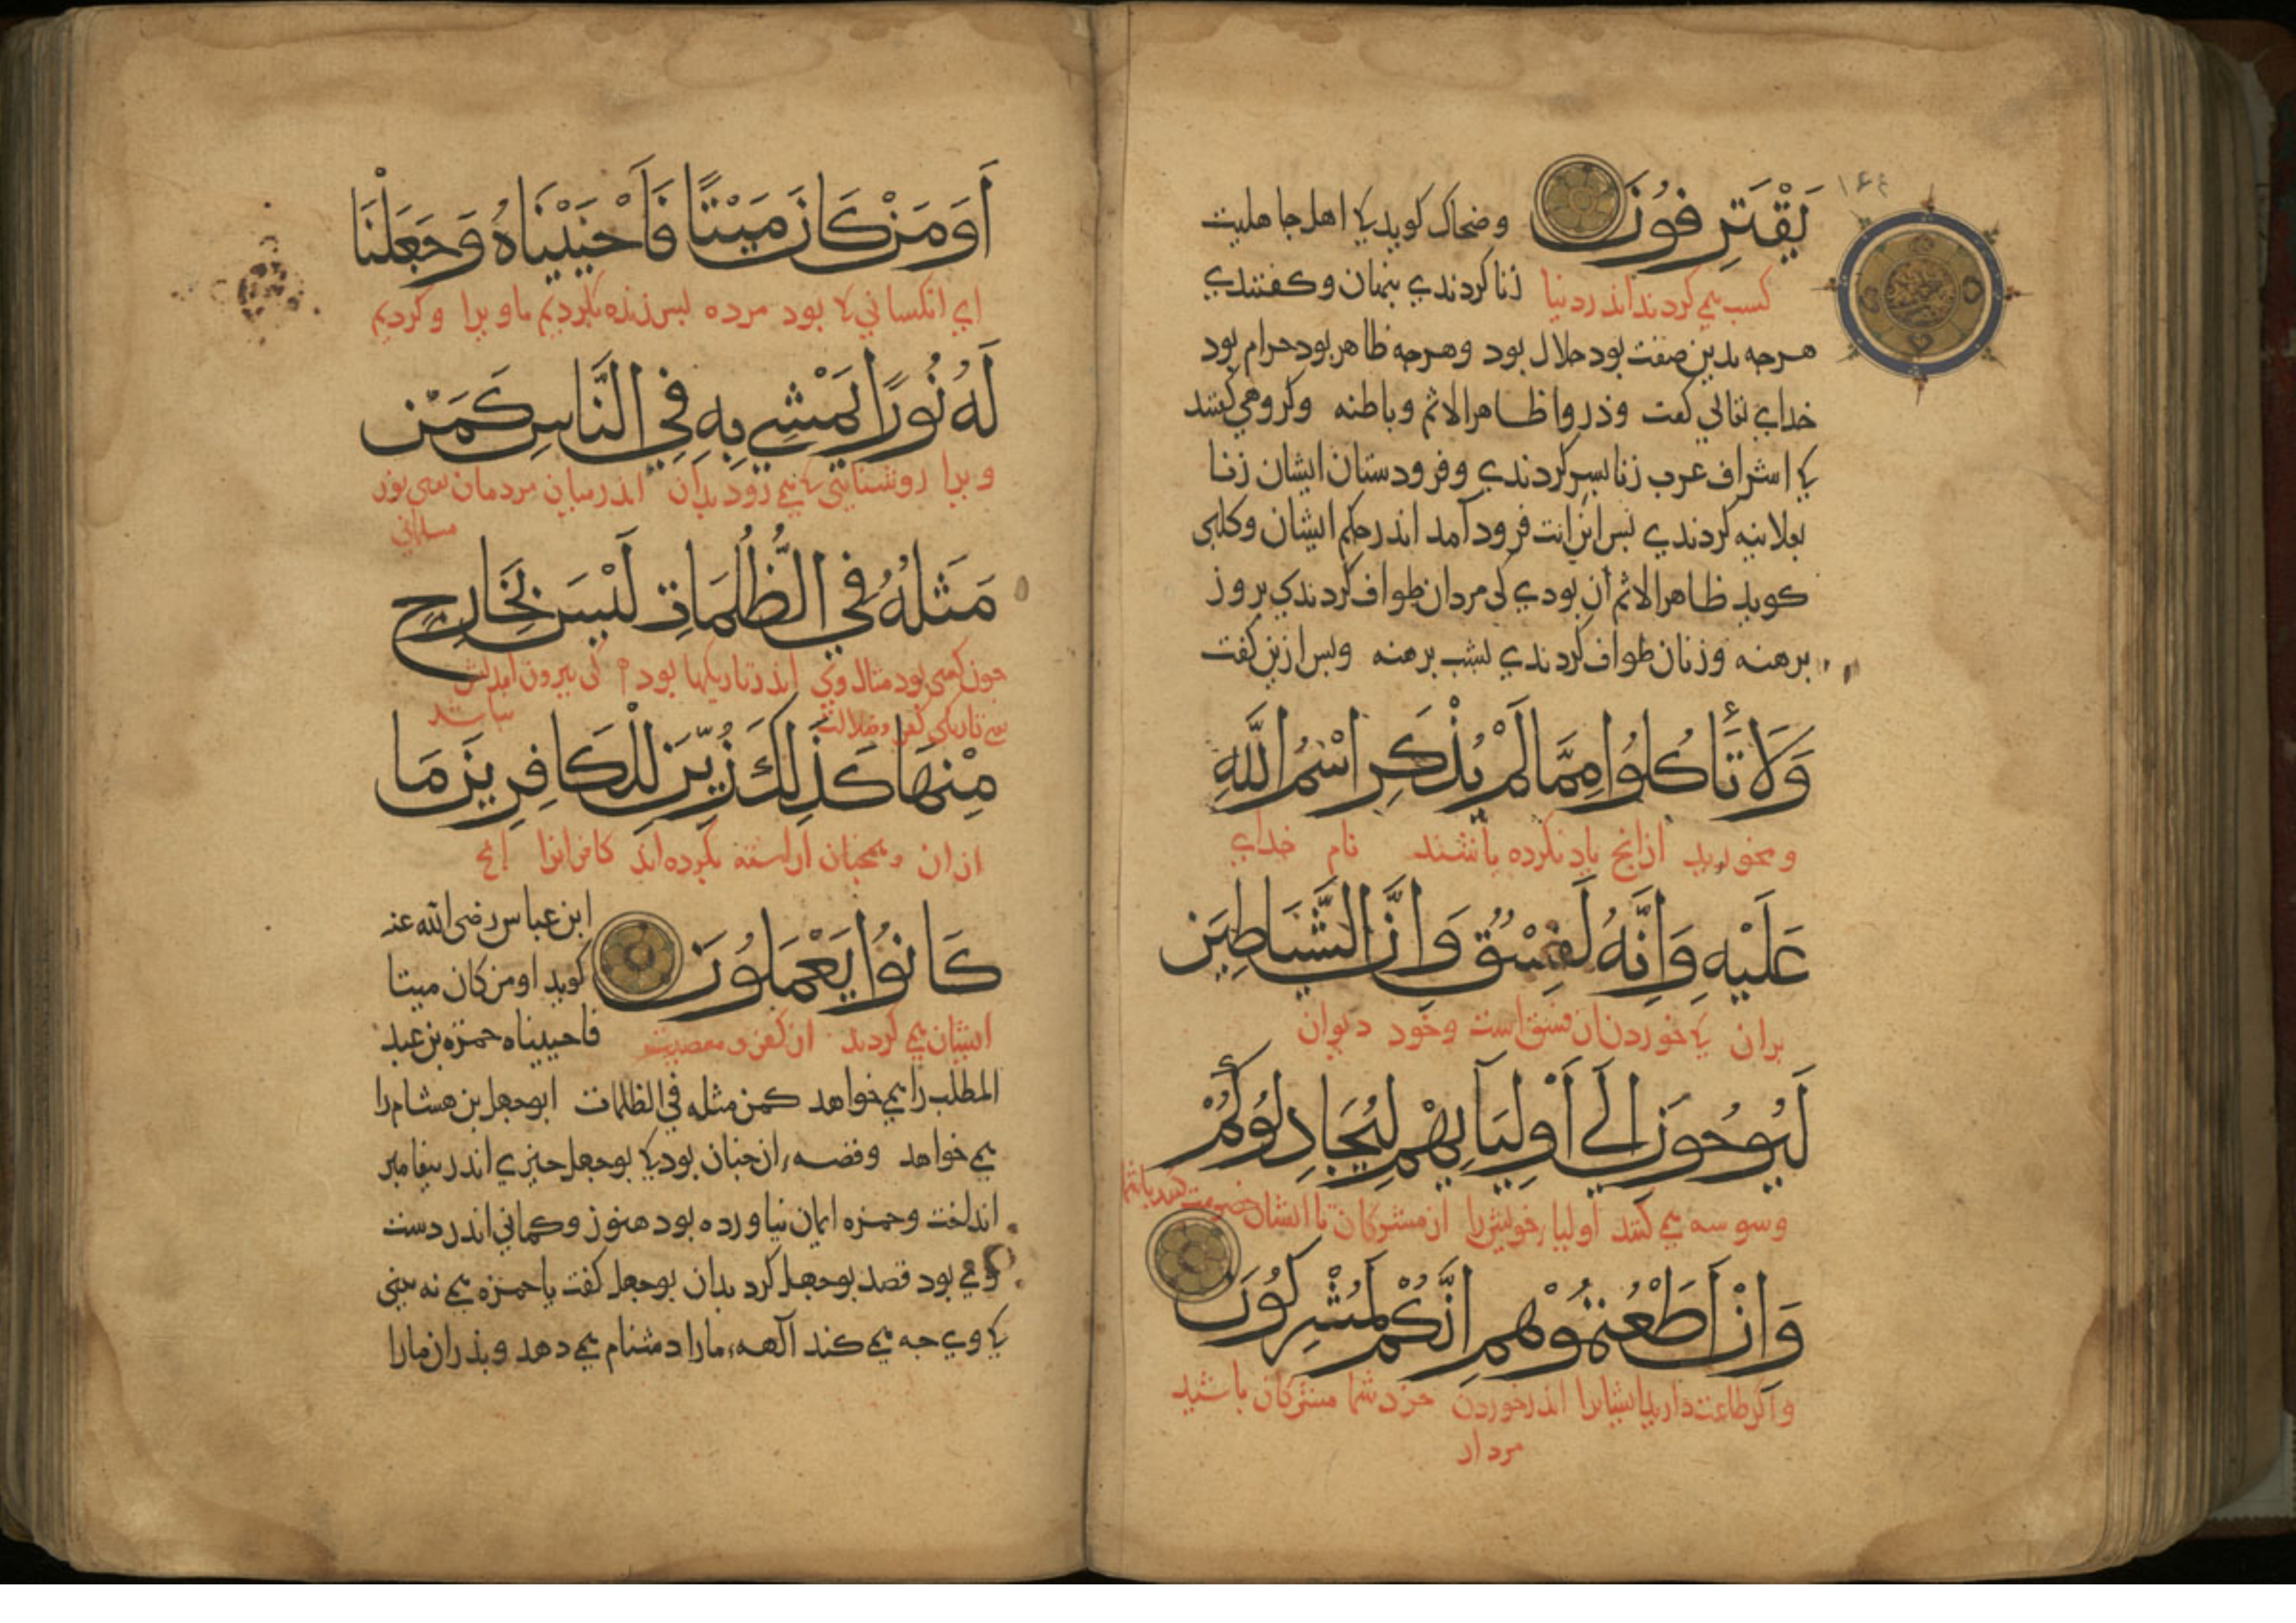 ۱۶۴
يَقْتَرِفُونَ وضحاک کوید کی اهل جاهلیت
کسب می کردند اندر دنیا زنا کردندي بنهان و کفتندي
هرجه بدین صفت بود حلال بود وهرجه ظاهر بود حرام بود
خداي تعالي کفت وذروا ظاهر الاثم وباطنه وکروهي کفتند
کی اشراف عرب زنا بسر کردندي وفرودستان ایشان زنا
بعلانیه کردندي بس این ایت فرود آمد اندر حکم ایشان وکلبي
کوید ظاهر الاثم آن بودي کی مردان طواف کردندي بروز
برهنه وزنان طواف کردندي بشب برهنه وبس ازین کفت
وَلَا تَأْكُلُوا مِمَّا لَمْ يُذْكَرِ اسْمُ اللَّهِ
ومخورید ازانج یاد نکرده باشند نام خداي
عَلَيْهِ وَإِنَّهُ لَفِسْقٌ وَإِنَّ الشَّيَاطِينَ
بران کی خوردن ان فسق است وخود دیوان
لَيُوحُونَ إِلَى أَوْلِيَآئِهِمْ لِيُجَادِلُوكُمْ
وسوسه می کنند اولیاء خویش را از مشرکان تا ایشان خصومت کنند باشما
وَإِنْ أَطَعْتُمُوهُمْ إِنَّكُمْ لَمُشْرِكُونَ
واکر طاعت دارید ایشانرا اندر خوردن جزد شما مشرکان باشید
مردار
أَوَمَنْ كَانَ مَيْتًا فَأَحْيَيْنَاهُ وَجَعَلْنَا
اي انکساني کی بود مرده بس زنده بکردیم ما ویرا وکردیم
لَهُ نُورًا يَمْشِي بِهِ فِي النَّاسِ كَمَنْ
ویرا روشنایي کی می رود بدان اندر میان مردمان یعنی نور
مسلماني
مَثَلُهُ فِي الظُّلُمَاتِ لَيْسَ بِخَارِجٍ
جون کسی بود مثال وي اندر تاریکیها بود کی بیرون امدنش
یعنی تاریکي کفر وضلالت نباشد
مِنْهَا كَذَلِكَ زُيِّنَ لِلْكَافِرِينَ مَا
از ان وهمجنان اراسته بکرده اند کافرانرا انج
كَانُوا يَعْمَلُونَ ابن عباس رضی الله عنه
کوید اومن کان میتا
ایشان می کردند از کفر و معصیت فاحییناه حمزه بن عبد
المطلب را می خواهد کمن مثله في الظلمات ابوجهل بن هشام را
می خواهد وقصه ان جنان بود کی بوجهل جیزي اندر بیغامبر
انداخت وحمزه ایمان نیاورده بود هنوز وکماني اندر دست
وي بود قصد بوجهل کرد بدان بوجهل کفت یا حمزه می نه بینی
کی وي جه می کند آلهه مارا دشنام می دهد وبدران مارا